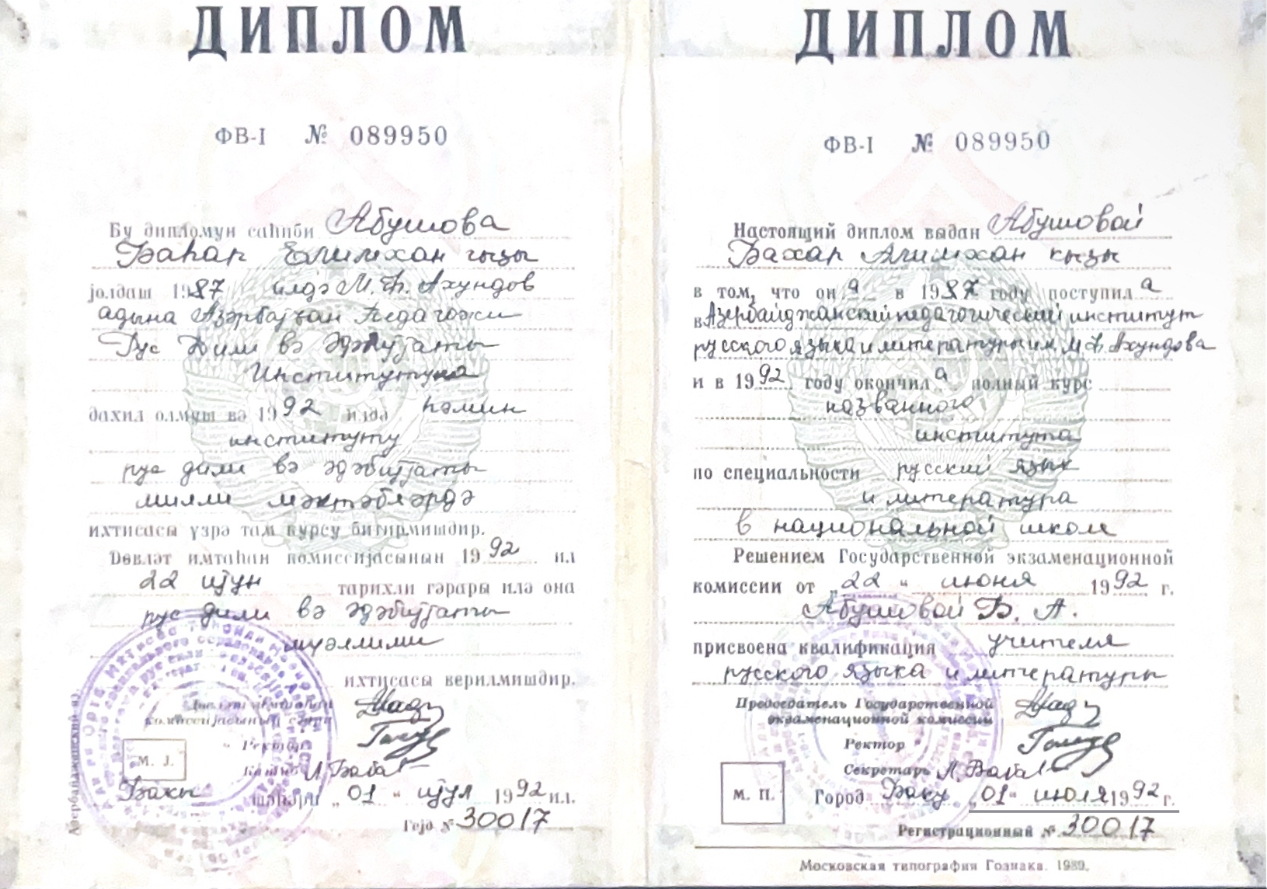 ДИПЛОМ
ФВ-I № 089950
Бу дипломун саһиби Абушова
Баһар Әлимхан гызы
јолдаш 1987 илдә М. Ф. Ахундов
адына Азәрбајҹан Педагожи
Рус Дили вә Әдәбијјаты
Институтуна
дахил олмуш вә 1992 илдә һәмин
институту
рус дили вә әдәбијјаты
милли мәктәбләрдә
ихтисасы үзрә там курсу битирмишдир.
Дөвләт имтаһан комиссијасынын 1992 ил
22 ијун тарихли гәрары илә она
рус дили вә әдәбијјаты
муәллими
ихтисасы верилмишдир.
Дөвләт имтаһан
комиссијасынын сәдри
Ректор
Катиб
М. Ј.
Бакы шәһәри „01“ ијул 1992 ил.
Гејд № 30017
Азербайджанский яз.
ДИПЛОМ
ФВ-I № 089950
Настоящий диплом выдан Абушовой
Бахар Алимхан кызы
в том, что он а в 1987 году поступил а
в Азербайджанский педагогический институт
русского языка и литературы им. М. Ф. Ахундова
и в 1992 году окончил а полный курс
названного
института
по специальности русский язык
и литература
в национальной школе
Решением Государственной экзаменационной
комиссии от „22“ июня 1992 г.
Абушовой Б. А.
присвоена квалификация учителя
русского языка и литературы
Председатель Государственной
экзаменационной комиссии
Ректор
Секретарь
М. П.
Город Баку „01“ июля 1992 г.
Регистрационный № 30017
Московская типография Гознака. 1989.